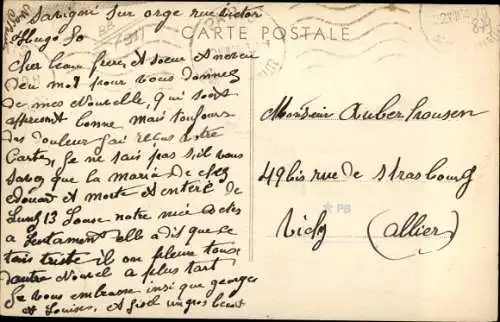 Savigni sur orge rue Victor
Hugo 80
CARTE POSTALE
Cher beau frère, et soeur et neveu
deu mot pour vous donner
de mes nouvelle, qui sont
bonne mais toujours
des douleur j'ai reçus votre
Carte, Je ne sais pas s'il vous
savez que la maria de chez
édouard et morte et entéré de
Lundi 13 Louise notre niece
a Lenterement elle a dit que ce
tais triste il on pleure tous
dautre nouvel a plus tart
Je vous embrasse insi que georges
et Louise, et gros
Monsieur Auberhousen
49bis rue de strasbourg
Vichy (allier)
PB